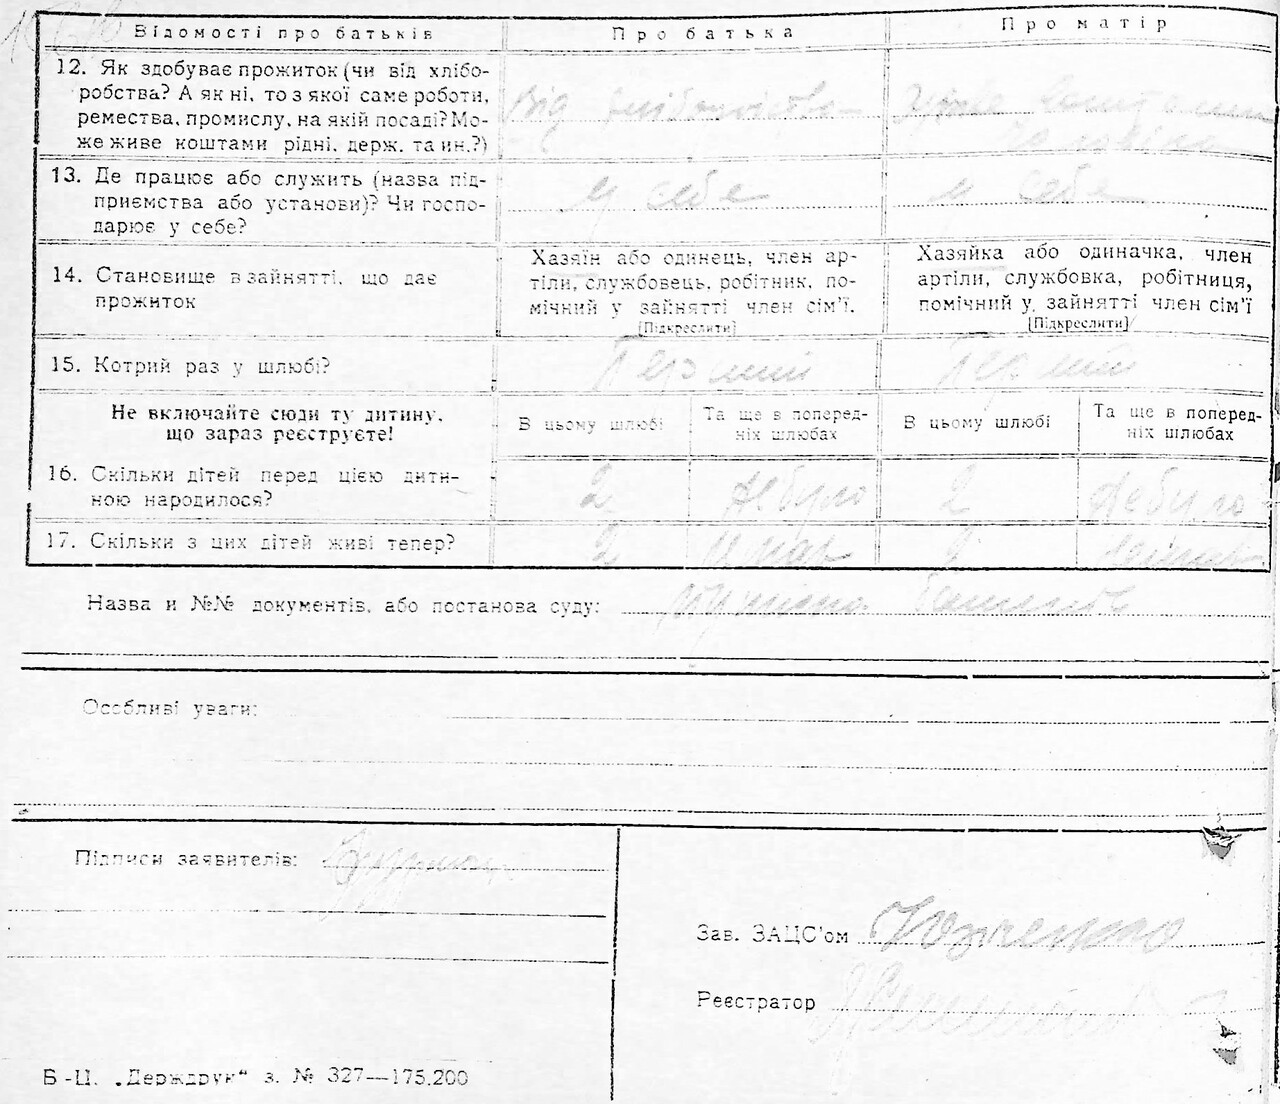 Відомості про батьків
Про батька
Про матір
12. Як здобуває прожиток (чи від хлібо-
робства? А як ні, то з якої саме роботи,
ремества, промислу, на якій посаді? Мо-
же живе коштами рідні, держ. та ин.?)
Від
13. Де працює або служить (назва під-
приємства або установи)? Чи госпо-
дарює у себе?
у себе
у себе
14. Становище в зайнятті, що дає
прожиток
Хазяїн або одинець, член ар-
тіли, службовець, робітник, по-
мічний у зайнятті член сім'ї.
[Підкреслити]
Хазяйка або одиначка, член
артіли, службовка, робітниця,
помічний у зайнятті член сім'ї
[Підкреслити]
15. Котрий раз у шлюбі?
Не включайте сюди ту дитину,
що зараз реєструєте!
В цьому шлюбі
Та ще в поперед-
ніх шлюбах
В цьому шлюбі
Та ще в поперед-
ніх шлюбах
16. Скільки дітей перед цією дити-
ною народилося?
2
не було
2
не було
17. Скільки з цих дітей живі тепер?
2
2
Назва и №№ документів, або постанова суду:
Особливі уваги:
Підписи заявителів:
Зав. ЗАЦС'ом
Реєстратор
Б-Ц. „Держдрук“ з. № 327—175.200